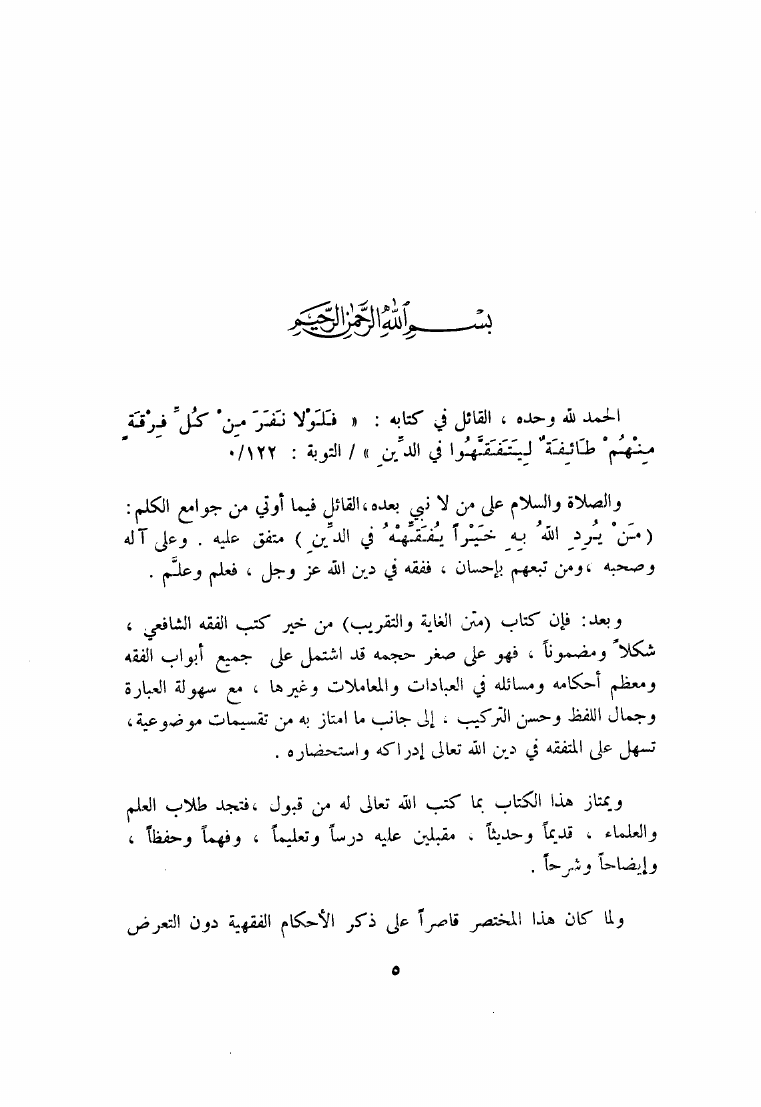 بسم الله الرحمن الرحيم
الحمد لله وحده ، القائل في كتابه : « فَلَوْلا نَفَرَ مِنْ كُلِّ فِرْقَةٍ
مِنْهُمْ طَائِفَةٌ لِيَتَفَقَّهُوا في الدِّينِ » / التوبة : ١٢٢/٠
والصلاة والسلام على من لا نبي بعده، القائل فيما أوتي من جوامع الكلم :
( مَنْ يُرِدِ اللهُ بِهِ خَيْراً يُفَقِّهْهُ في الدِّينِ ) متفق عليه . وعلى آله
وصحبه ، ومن تبعهم بإحسان ، ففقه في دين الله عز وجل ، فعلم وعلَّم .
وبعد : فإن كتاب (متن الغاية والتقريب) من خير كتب الفقه الشافعي ،
شكلاً ومضموناً ، فهو على صغر حجمه قد اشتمل على جميع أبواب الفقه
ومعظم أحكامه ومسائله في العبادات والمعاملات وغيرها ، مع سهولة العبارة
وجمال اللفظ وحسن التركيب ، إلى جانب ما امتاز به من تقسيمات موضوعية ،
تسهل على المتفقه في دين الله تعالى إدراكه واستحضاره .
ويمتاز هذا الكتاب بما كتب الله تعالى له من قبول ، فتجد طلاب العلم
والعلماء ، قديماً وحديثاً ، مقبلين عليه درساً وتعليماً ، وفهماً وحفظاً ،
وإيضاحاً وشرحاً .
ولما كان هذا المختصر قاصراً على ذكر الأحكام الفقهية دون التعرض
٥